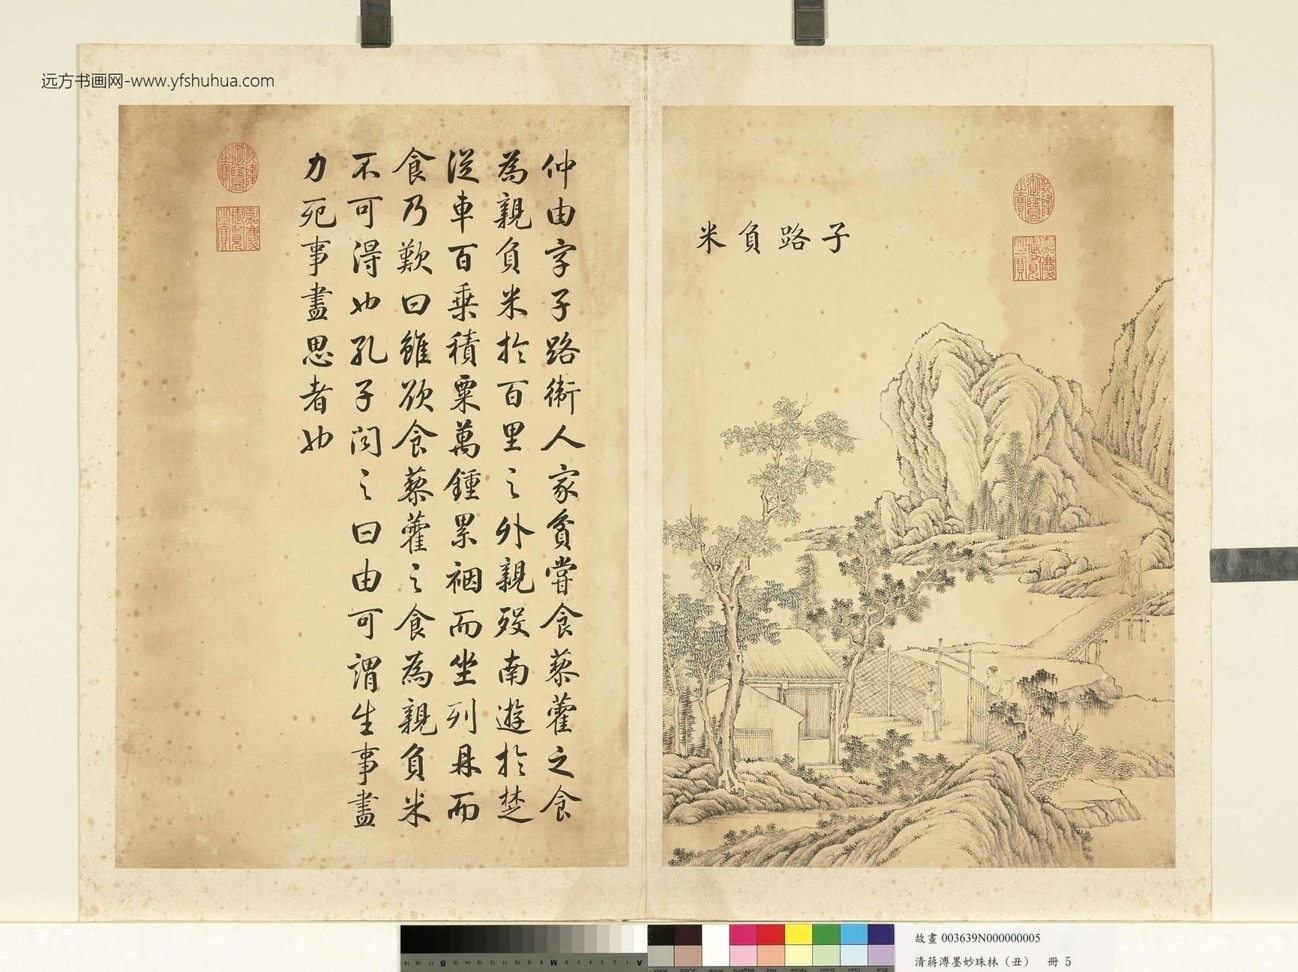 远方书画网-www.yfshuhua.com
子路負米
仲由字子路衛人家貧嘗食藜藿之食
為親負米於百里之外親歿南遊於楚
從車百乘積粟萬鍾累裀而坐列鼎而
食乃歎曰雖欲食藜藿之食為親負米
不可得也孔子聞之曰由可謂生事盡
力死事盡思者也
乾隆御覽之寶
嘉慶御覽之寶
乾隆御覽之寶
嘉慶御覽之寶
故畫 003639N000000005
清蔣溥墨妙珠林（丑） 冊 5